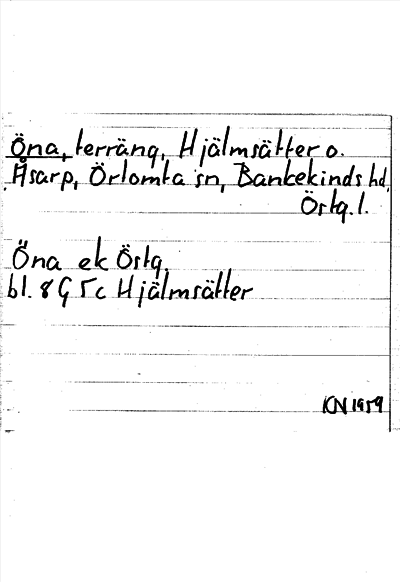 Öna, terräng, Hjälmsätter o.
Åsarp, Örtomta sn, Bankekinds hd,
Östg. l.
Öna ek Östg.
bl. 8 G 5 c Hjälmsätter
KN 1959